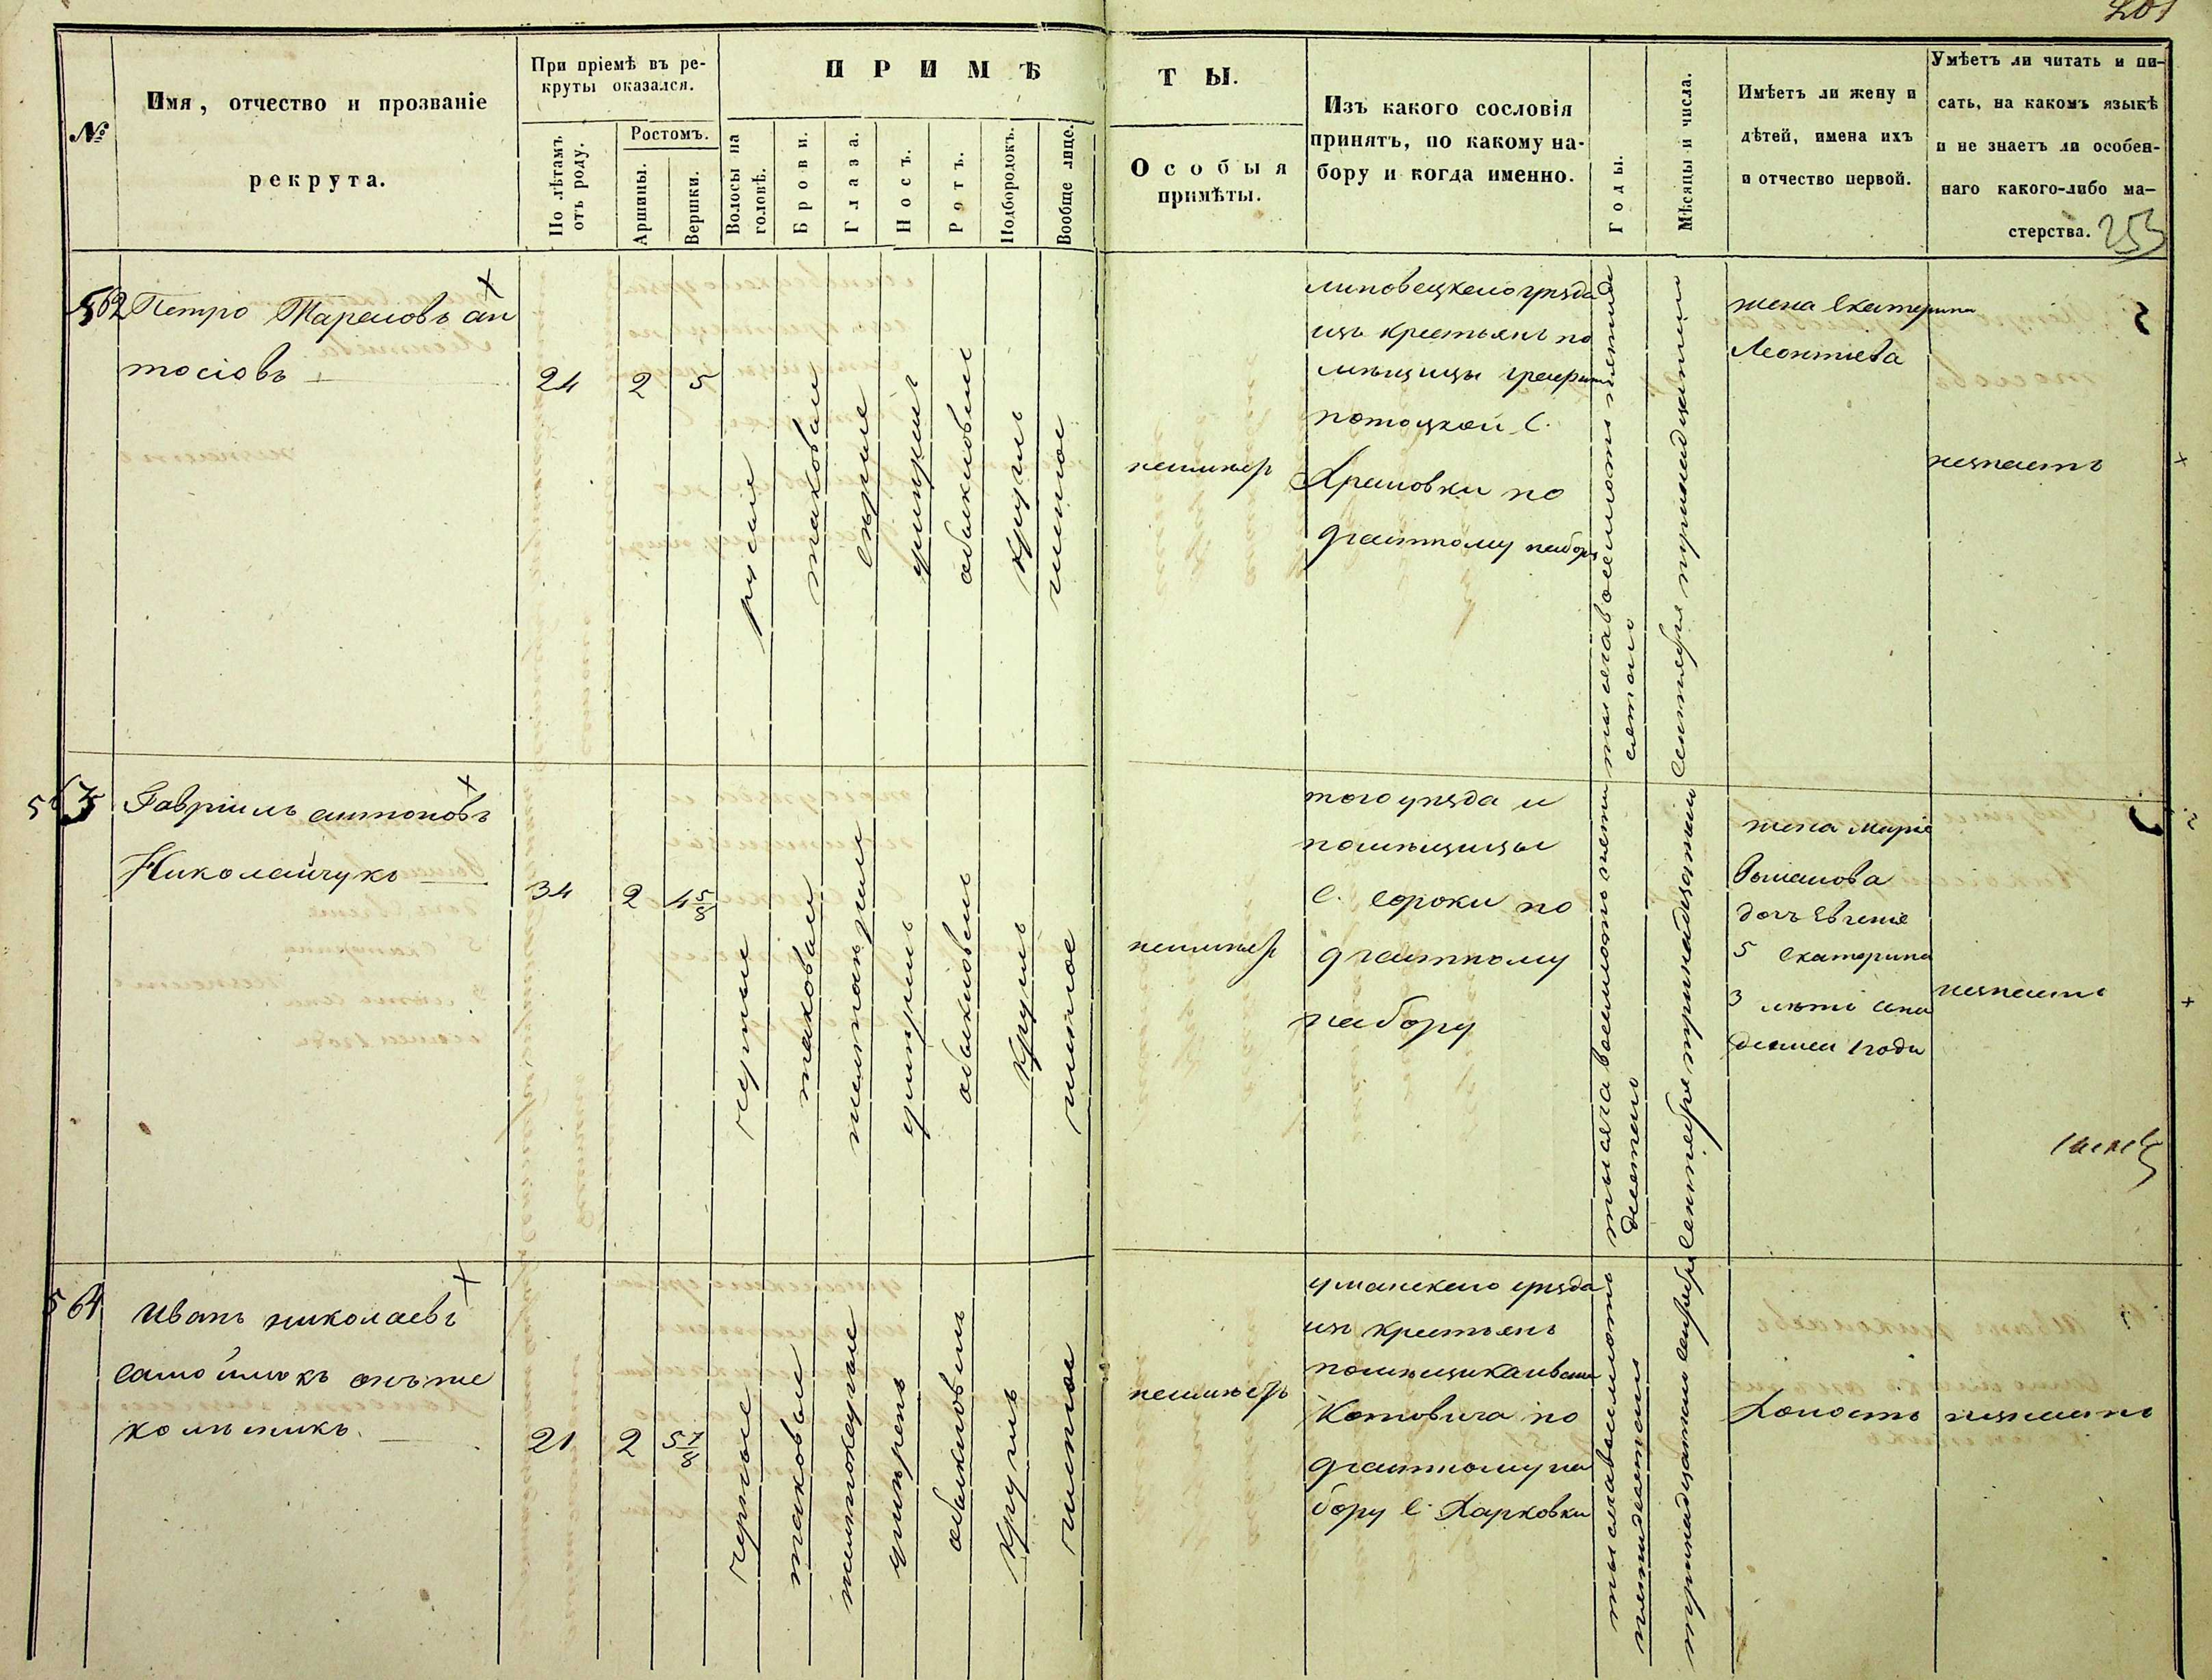 201
№
Имя, отчество и прозваніе
рекрута.
При пріемѣ въ ре-
круты оказался.
По лѣтамъ
отъ роду.
Ростомъ.
Аршины.
Вершки.
ПРИМѢ
Волосы на
головѣ.
Брови.
Глаза.
Носъ.
Ротъ.
Подбородокъ.
Вообще лице.
ТЫ.
Особыя
примѣты.
Изъ какого сословія
принятъ, по какому на-
бору и когда именно.
Годы.
Мѣсяцы и числа.
Имѣетъ ли жену и
дѣтей, имена ихъ
и отчество первой.
Умѣетъ ли читать и пи-
сать, на какомъ языкѣ
и не знаетъ ли особен-
наго какого-либо ма-
стерства.
253
562
Петро Тарасовъ ан
тосіовъ
24
2
5
русые
таковые
сѣрые
умѣрен
обыкновен
круглъ
чистое
неимѣер
липовецкаго уѣзда
изъ крестьянъ по
мѣщицы графини
потоцкой С.
по
9 частному набору
тысяча восемсотъ пятиде
сятого
сентября тринадцатого
жена Екатерина
Леонтіева
незнаетъ
563
Гавріилъ антоновъ
Николайчукъ
34
2
4 5/8
черные
таковые
обыкновен
круглъ
чистое
неимѣер
того уѣзда и
помѣщицы
С. Сороки по
9 частному
набору
тысяча восемсотъ пяти
десятого
сентября тринадцатого
жена Маріе
Романова
дочъ Евгеніе
5 Екатерина
3 лѣтъ
1 года
незнаетъ
564
Иванъ николаевъ
самойлюкъ онъ же
21
2
5 7/8
черные
таковые
обыкновен
круглъ
чистое
неимѣеръ
уманскаго уѣзда
изъ крестьянъ
помѣщика ивана
Котовича по
9 частному на
бору С. Харковки
тысяча восемсотъ
пятидесятого
тринадцатого
Холостъ
незнаетъ